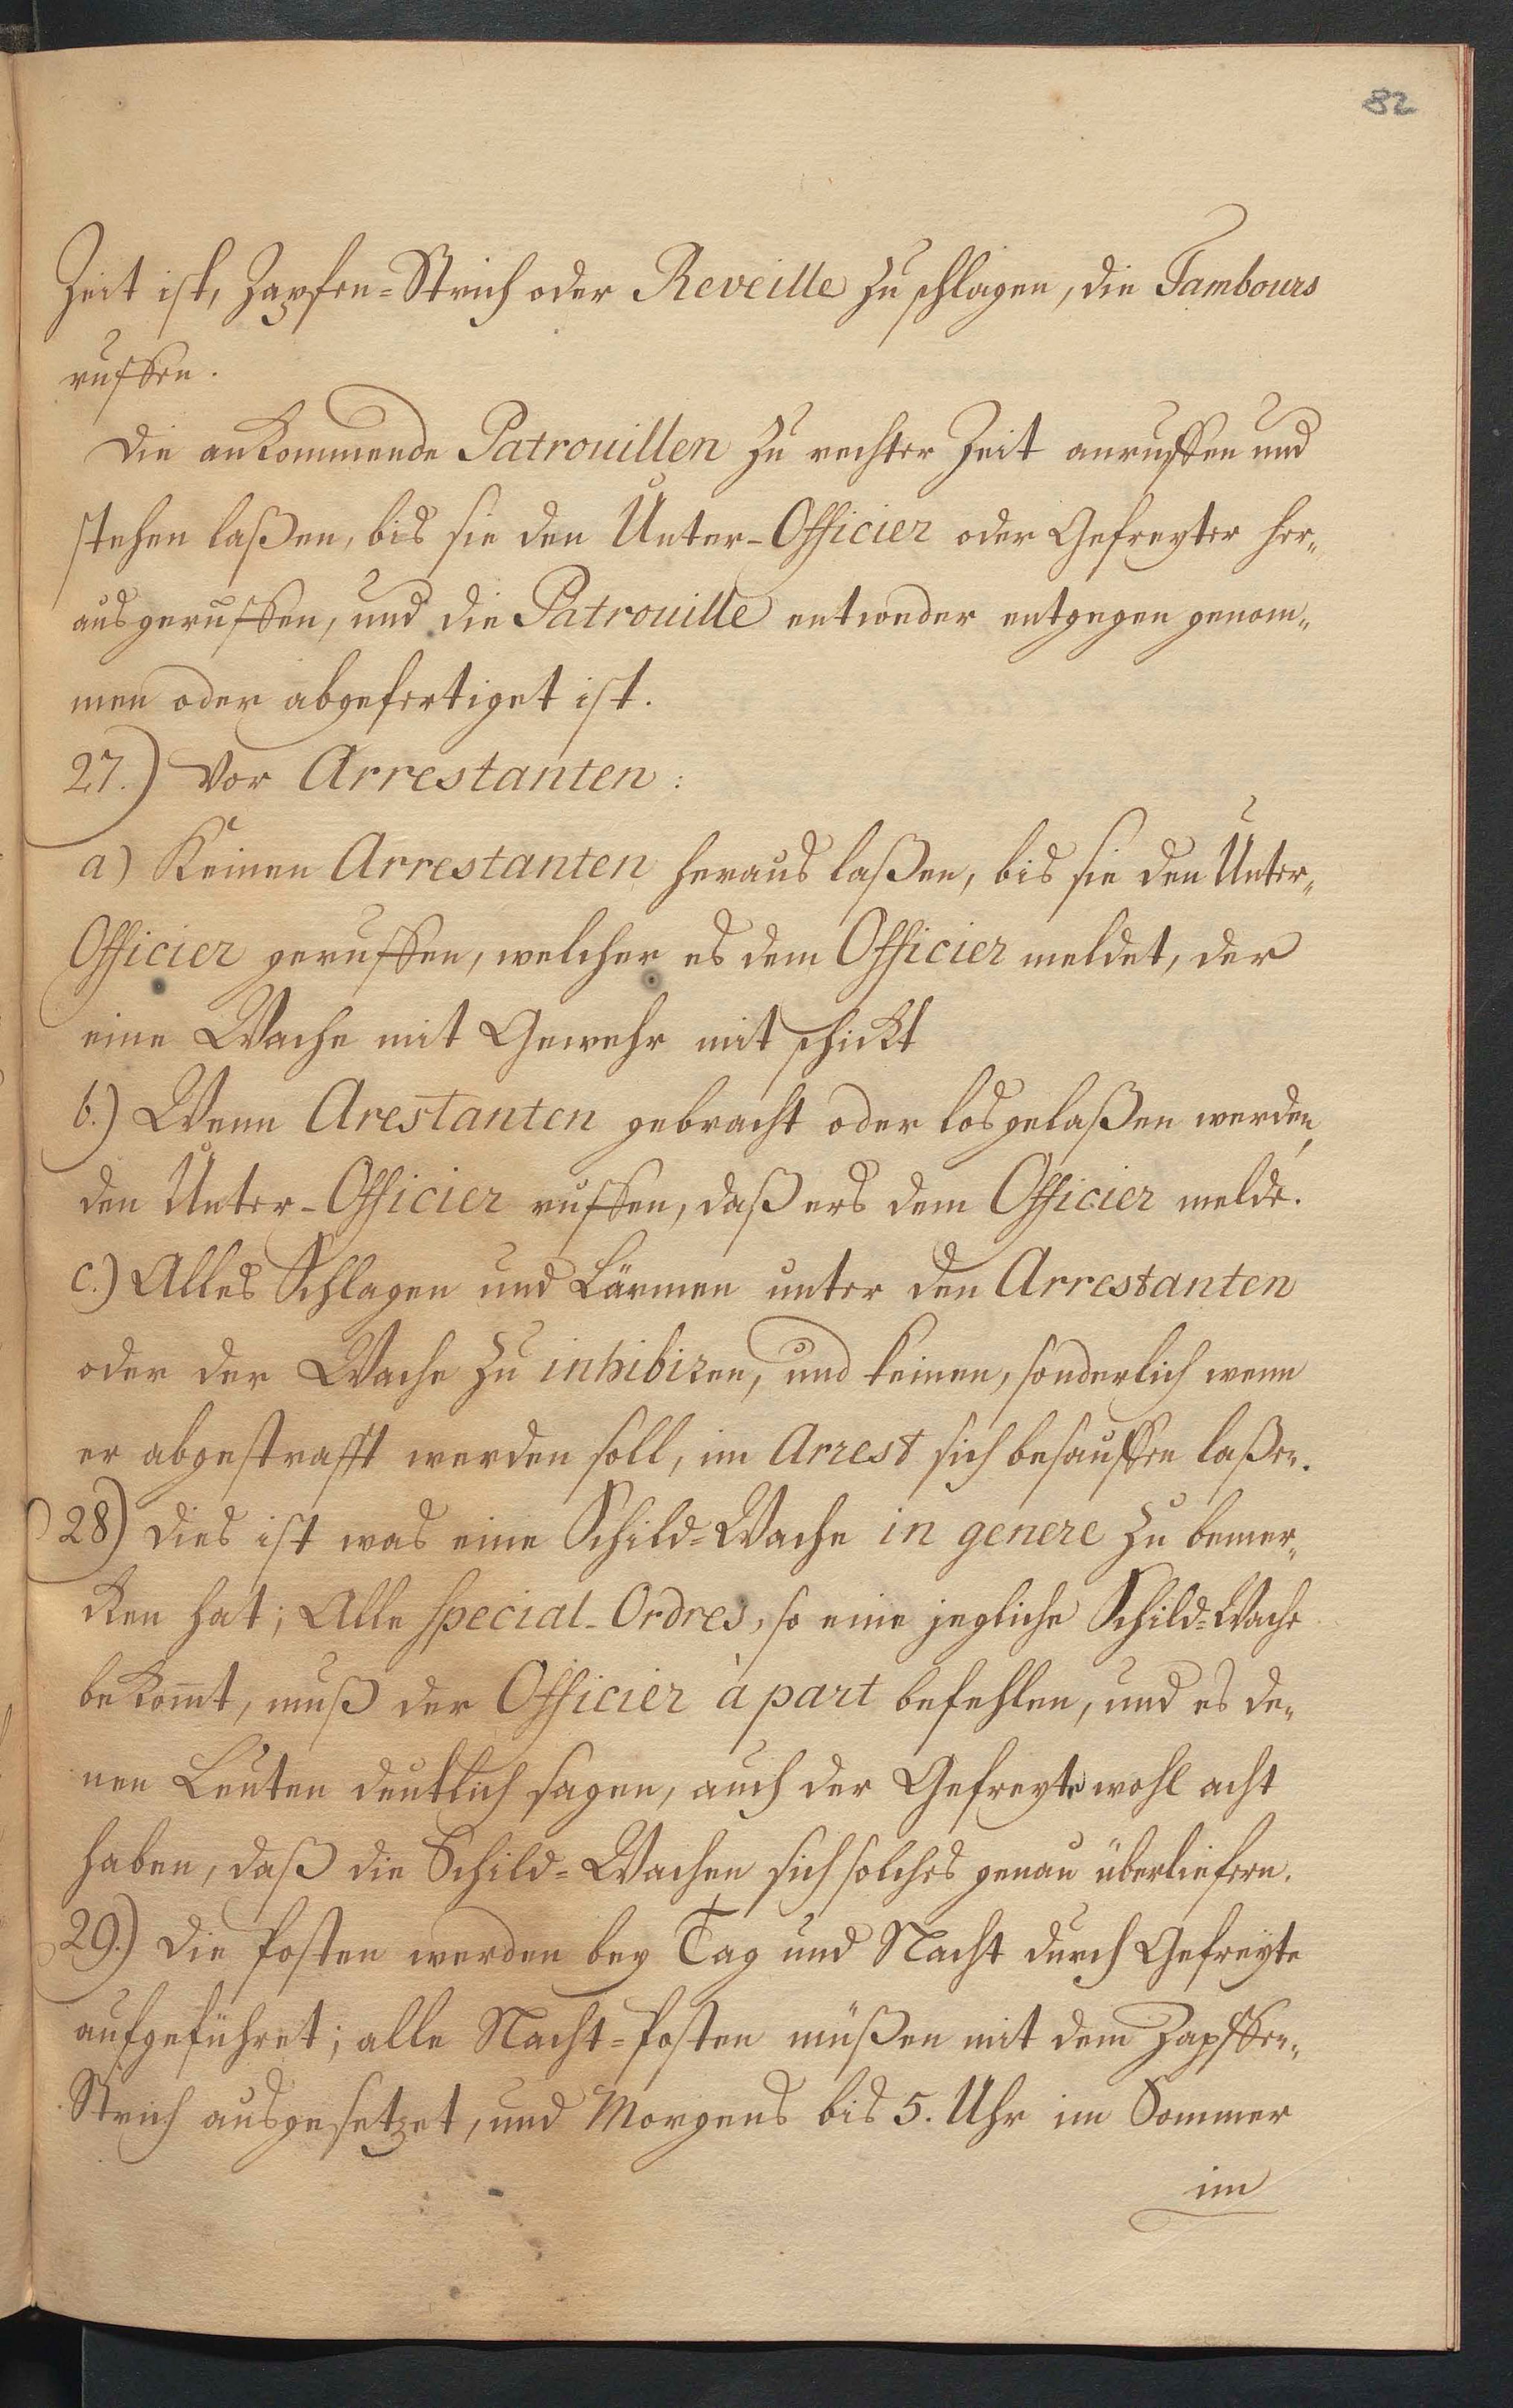 82
Zeit ist, Zapfen=Strich oder Reveille zu schlagen, die Tambours
ruffen.
Die ankommende Patrouillen zu rechter Zeit anruffen und
stehen laßen, bis sie den Unter-Officier oder Gefreyter her„
ausgeruffen, und die Patrouille entweder entgegen genom„
men oder abgefertiget ist.
27.) Vor Arrestanten:
a) Keinen Arrestanten heraus laßen, bis sie den Unter„
Officier geruffen, welcher es dem Officier meldet, der
eine Wache mit Gewehr mit schickt
b.) Wenn Arestanten gebracht oder losgelaßen werden,
den Unter-Officier ruffen, daß ers dem Officier melde.
c.) Alles Schlagen und Lärmen unter den Arrestanten
oder der Wache zu inhibiren, und keinen, sonderlich wenn
er abgestrafft werden soll, im Arrest sich besauffen laßen.
28) Dies ist was eine Schild=Wache in genere zu bemer„
cken hat; Alle special-Ordres, so eine jegliche Schild=Wache
bekom̄t, muß der Officier à part befehlen, und es de„
nen Leuten deutlich sagen, auch der Gefreyte wohl acht
haben, daß die Schild=Wachen sich solches genau überliefern.
29.) Die Posten werden bey Tag und Nacht durch Gefreyte
aufgeführet; alle Nacht=Posten müßen mit dem Zapffen„
Strich ausgesetzet, und Morgens bis 5. Uhr im Sommer
im